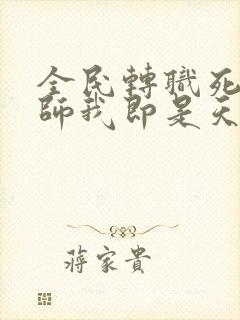 全民轉職死
師我即是天
蔣家貴